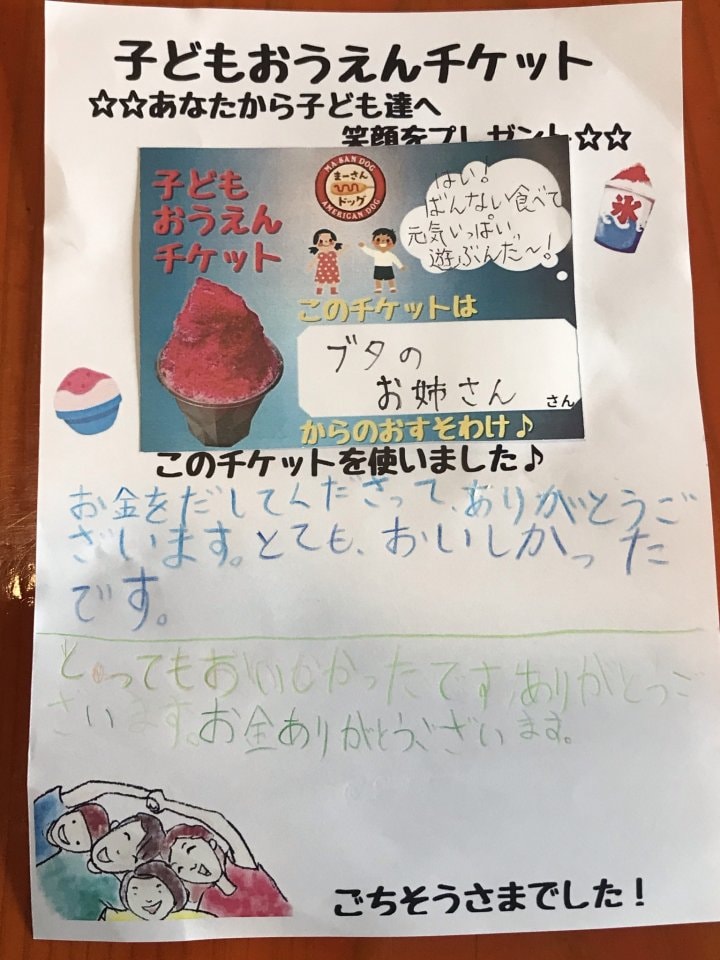 子どもおうえんチケット
☆☆あなたから子ども達へ
笑顔をプレゼント☆☆
子ども
おうえん
チケット
MA-SAN DOG
まーさん
ドッグ
AMERICAN DOG
はい!
ばんない食べて
元気いっぱい
遊ぶんだ〜!
氷
このチケットは
ブタの
お姉さん
さん
からのおすそわけ♪
このチケットを使いました♪
お金をだしてくださって、ありがとうご
ざいます。とても、おいしかった
です。
とってもおいしかったです。ありがとうご
ざいます。お金ありがとうございます。
ごちそうさまでした!